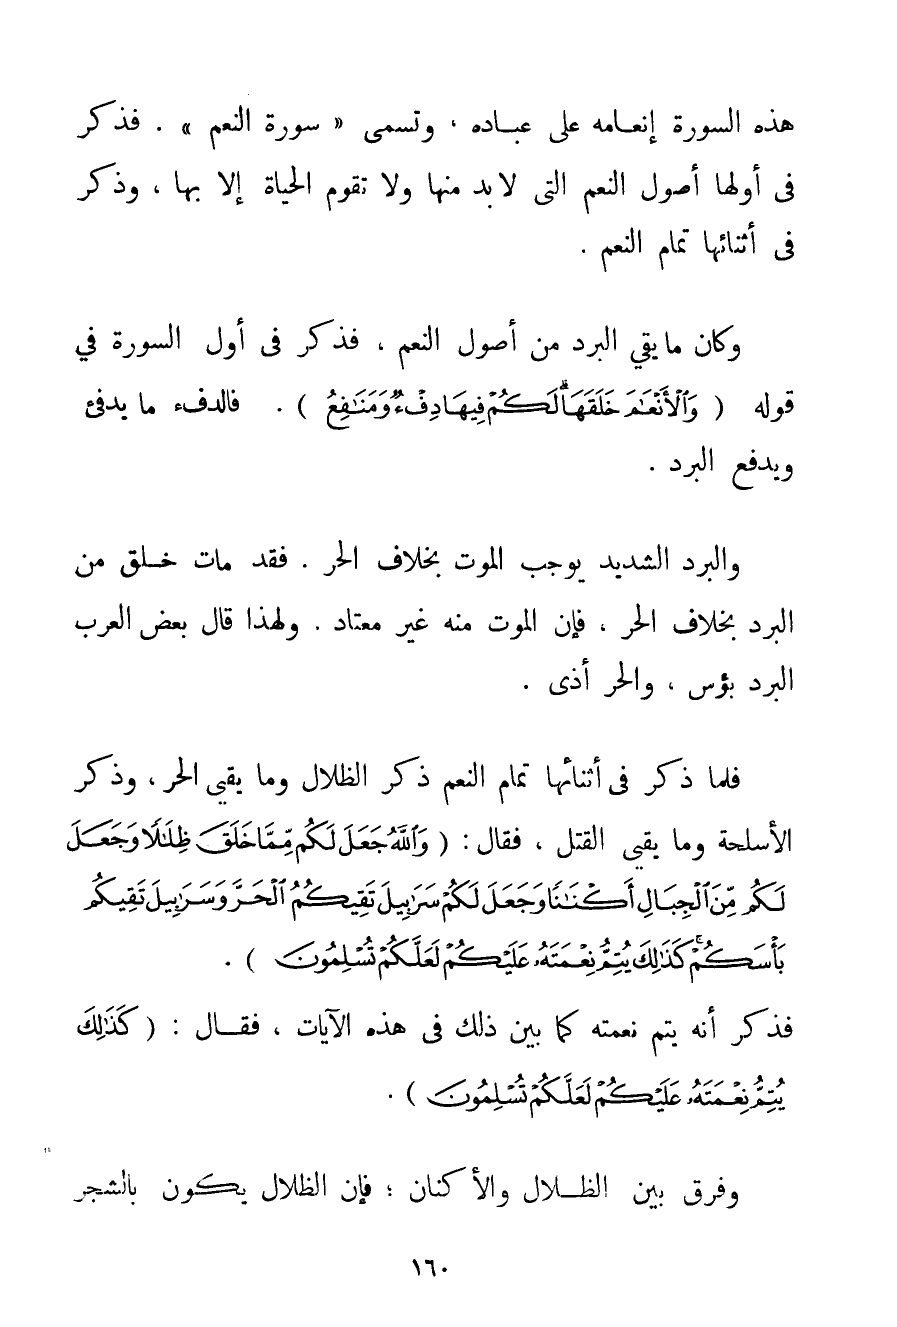 هذه السورة إنعامه على عباده ، وتسمى « سورة النعم » . فذكر
فى أولها أصول النعم التى لابد منها ولا تقوم الحياة إلا بها ، وذكر
فى أثنائها تمام النعم .
وكان ما يقي البرد من أصول النعم ، فذكر فى أول السورة في
قوله ( وَٱلْأَنْعَٰمَ خَلَقَهَا ۗ لَكُمْ فِيهَا دِفْءٌ وَمَنَٰفِعُ ) . فالدفء ما يدفئ
ويدفع البرد .
والبرد الشديد يوجب الموت بخلاف الحر . فقد مات خلق من
البرد بخلاف الحر ، فإن الموت منه غير معتاد . ولهذا قال بعض العرب
البرد بؤس ، والحر أذى .
فلما ذكر فى أثنائها تمام النعم ذكر الظلال وما يقي الحر ، وذكر
الأسلحة وما يقي القتل ، فقال : ( وَٱللَّهُ جَعَلَ لَكُم مِّمَّا خَلَقَ ظِلَٰلًا وَجَعَلَ
لَكُم مِّنَ ٱلْجِبَالِ أَكْنَٰنًا وَجَعَلَ لَكُمْ سَرَٰبِيلَ تَقِيكُمُ ٱلْحَرَّ وَسَرَٰبِيلَ تَقِيكُم
بَأْسَكُمْ ۚ كَذَٰلِكَ يُتِمُّ نِعْمَتَهُۥ عَلَيْكُمْ لَعَلَّكُمْ تُسْلِمُونَ ) .
فذكر أنه يتم نعمته كما بين ذلك فى هذه الآيات ، فقال : ( كَذَٰلِكَ
يُتِمُّ نِعْمَتَهُۥ عَلَيْكُمْ لَعَلَّكُمْ تُسْلِمُونَ ) .
وفرق بين الظلال والأكنان ؛ فإن الظلال يكون بالشجر
١٦٠